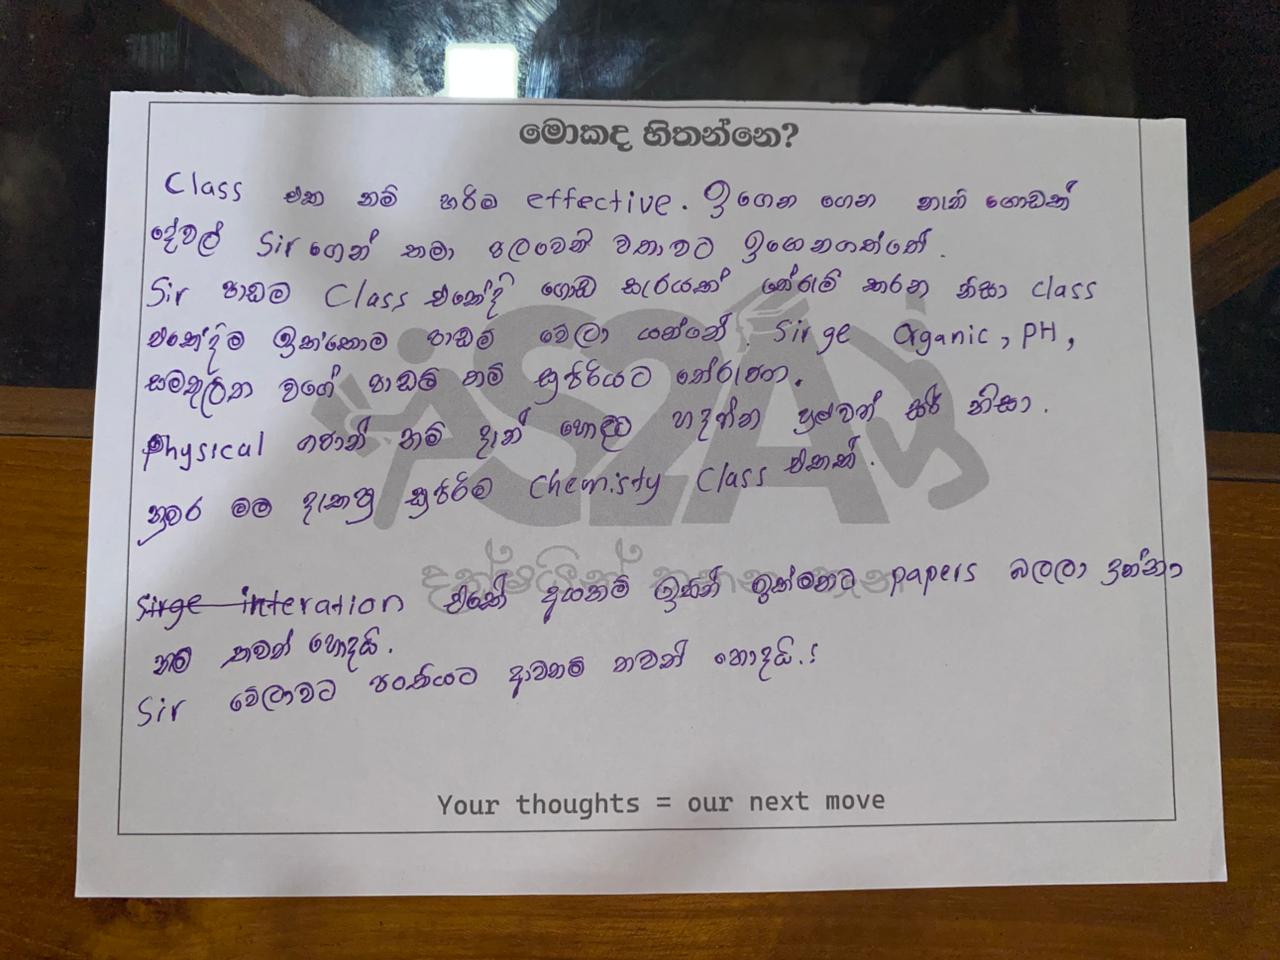 මොකද හිතන්නෙ?
Class එක නම් හරිම effective. ඉගෙන ගෙන නැති ගොඩක්
දේවල් Sir ගෙන් තමා පලවෙනි වතාවට ඉගෙනගත්තේ.
Sir පාඩම Class එකේදි ගොඩ සැරයක් තේරුම් කරන නිසා class
එකේදිම ඉක්නොම පාඩම් වෙලා යන්නේ. Sir ge Organic, PH,
සමතුලිත වගේ පාඩම් නම් සුපිරියට තේරුනා.
Physical ගාන් නම් දැන් හොඳට හදන්න පුළුවන් සර් නිසා.
නුවර මම දැකපු සුපිරිම Chemisty Class එකක්.
S2A
දක්ෂයින් අතර
Sirge interation එකේ දාලා ඉක්මනට papers බලලා දුන්නා
නම් තවත් හොදයි.
Sir වේලාවට පංතියට ආවනම් තවත් හොදයි.!
Your thoughts = our next move